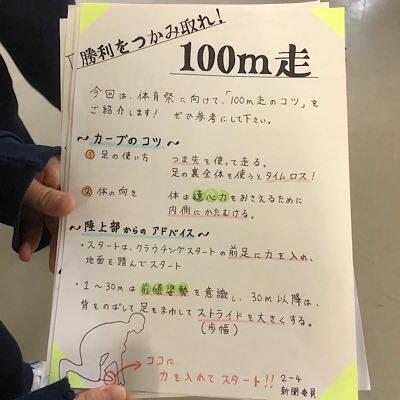 「勝利をつかみ取れ！
100m走
今回は、体育祭に向けて、「100m走のコツ」を
ご紹介します！ ぜひ参考にして下さい。
～カーブのコツ～
① 足の使い方 つま先を使って走る。
足の裏全体を使うとタイムロス！
② 体の向き 体は遠心力をおさえるために
内側にかたむける。
～陸上部からのアドバイス～
・スタートは、クラウチングスタートの前足に力を入れ、
地面を踏んでスタート
・1～30mは前傾姿勢を意識し、30m以降は、
背をのばして足をまわしてストライドを大きくする。
(歩幅)
ココに
力を入れてスタート!!
2-4
新聞委員